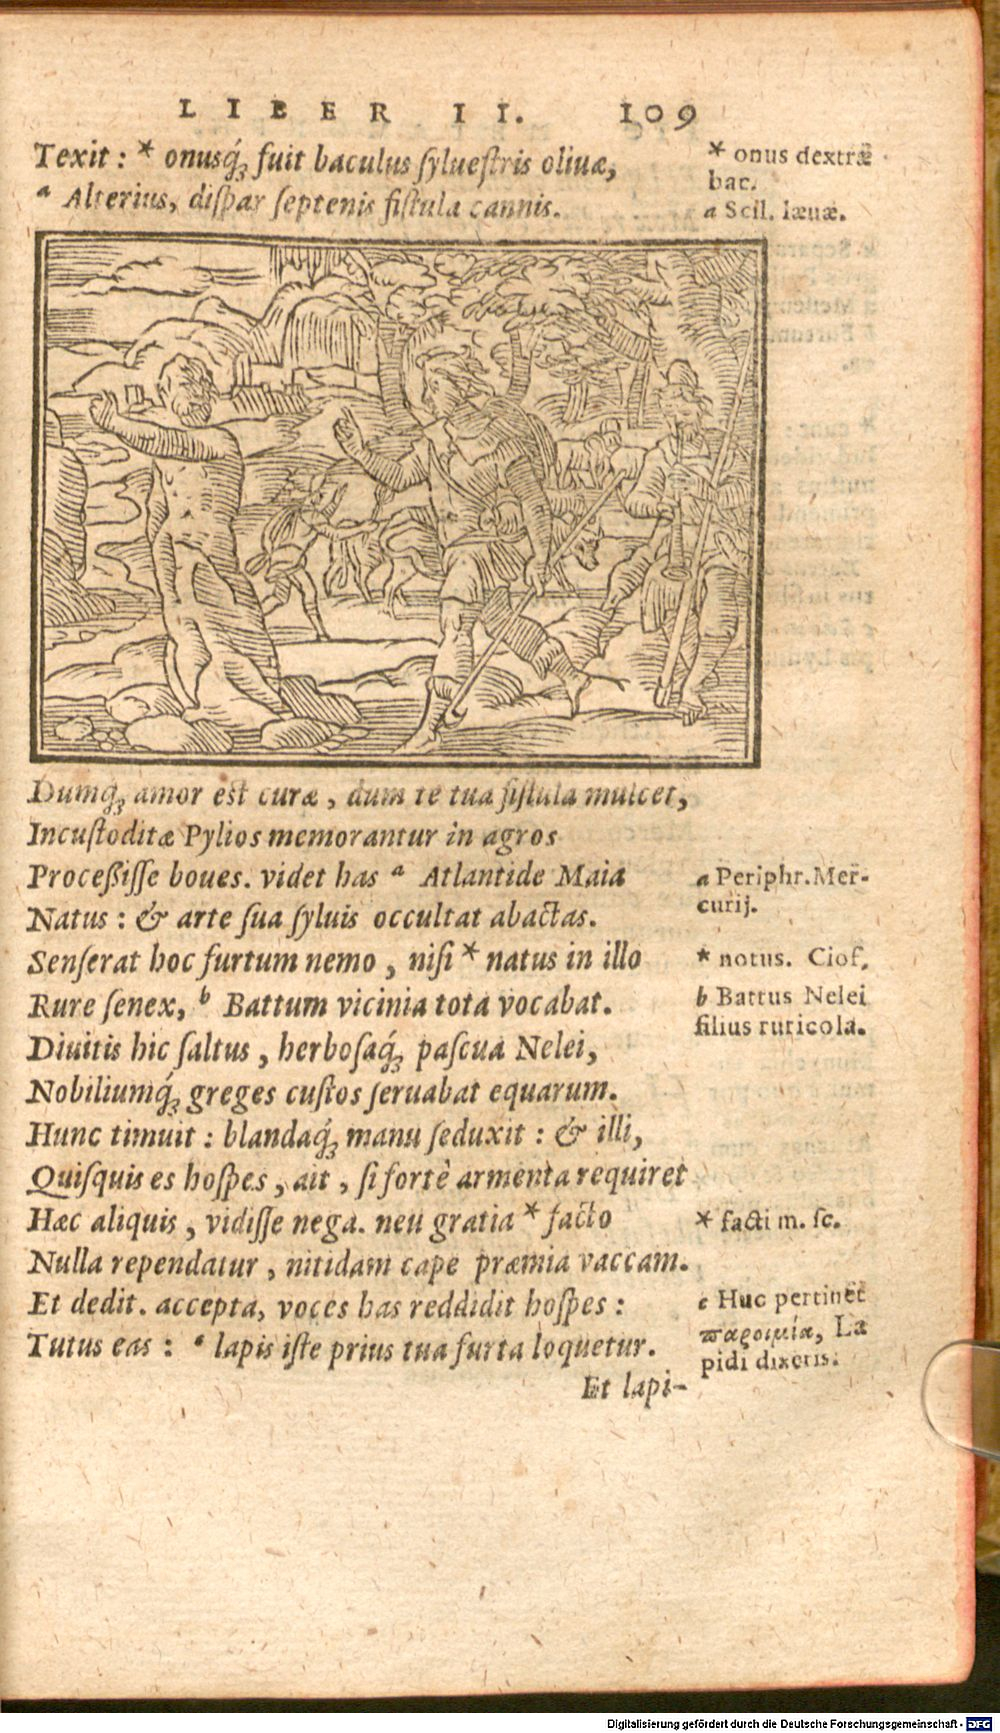 LIBER II. 109
Texit : * onusq́ꝫ fuit baculus ſylueſtris oliuæ,
* onus dextræ
bac.
ᵃ Alterius, diſpar ſeptenis fiſtula cannis.
a Scil. læuæ.
Dumq́ꝫ amor est curæ, dum te tua fiſtula mulcet,
Incuſtoditæ Pylios memorantur in agros
Proceßiſſe boues. videt has ᵃ Atlantide Maia
a Periphr. Mer-
curij.
Natus : & arte ſua ſyluis occultat abactas.
Senſerat hoc furtum nemo, niſi * natus in illo
* notus. Ciof.
Rure ſenex, ᵇ Battum vicinia tota vocabat.
b Battus Nelei
filius ruricola.
Diuitis hic ſaltus, herboſaq́ꝫ paſcua Nelei,
Nobiliumq́ꝫ greges cuſtos ſeruabat equarum.
Hunc timuit : blandaq́ꝫ manu ſeduxit : & illi,
Quiſquis es hoſpes, ait, ſi fortè armenta requiret
Hæc aliquis, vidiſſe nega. neu gratia * facto
* facti m. ſc.
Nulla rependatur, nitidam cape præmia vaccam.
Et dedit. accepta, voces has reddidit hoſpes :
c Huc pertinet
παροιμία, La
pidi dixeris.
Tutus eas : ᶜ lapis iſte prius tua furta loquetur.
Et lapi-
Digitalisierung gefördert durch die Deutsche Forschungsgemeinschaft - DFG